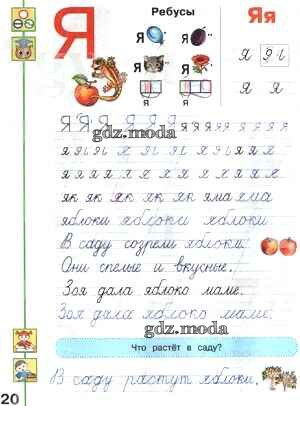 Я Ребусы Яя
Я Я
Я Я
Я Я
я я
Я Я Я Я Я Я Я я я я я я я я
gdz.moda
я я я я я я я я я я я я
я я я я я я я я я я я я
як як як як як яма яма
яблоки яблоки яблоки
В саду созрели яблоки.
Они спелые и вкусные.
Зоя дала яблоко маме.
Зоя дала яблоко маме.
gdz.moda
Что растёт в саду?
В саду растут яблоки.
20